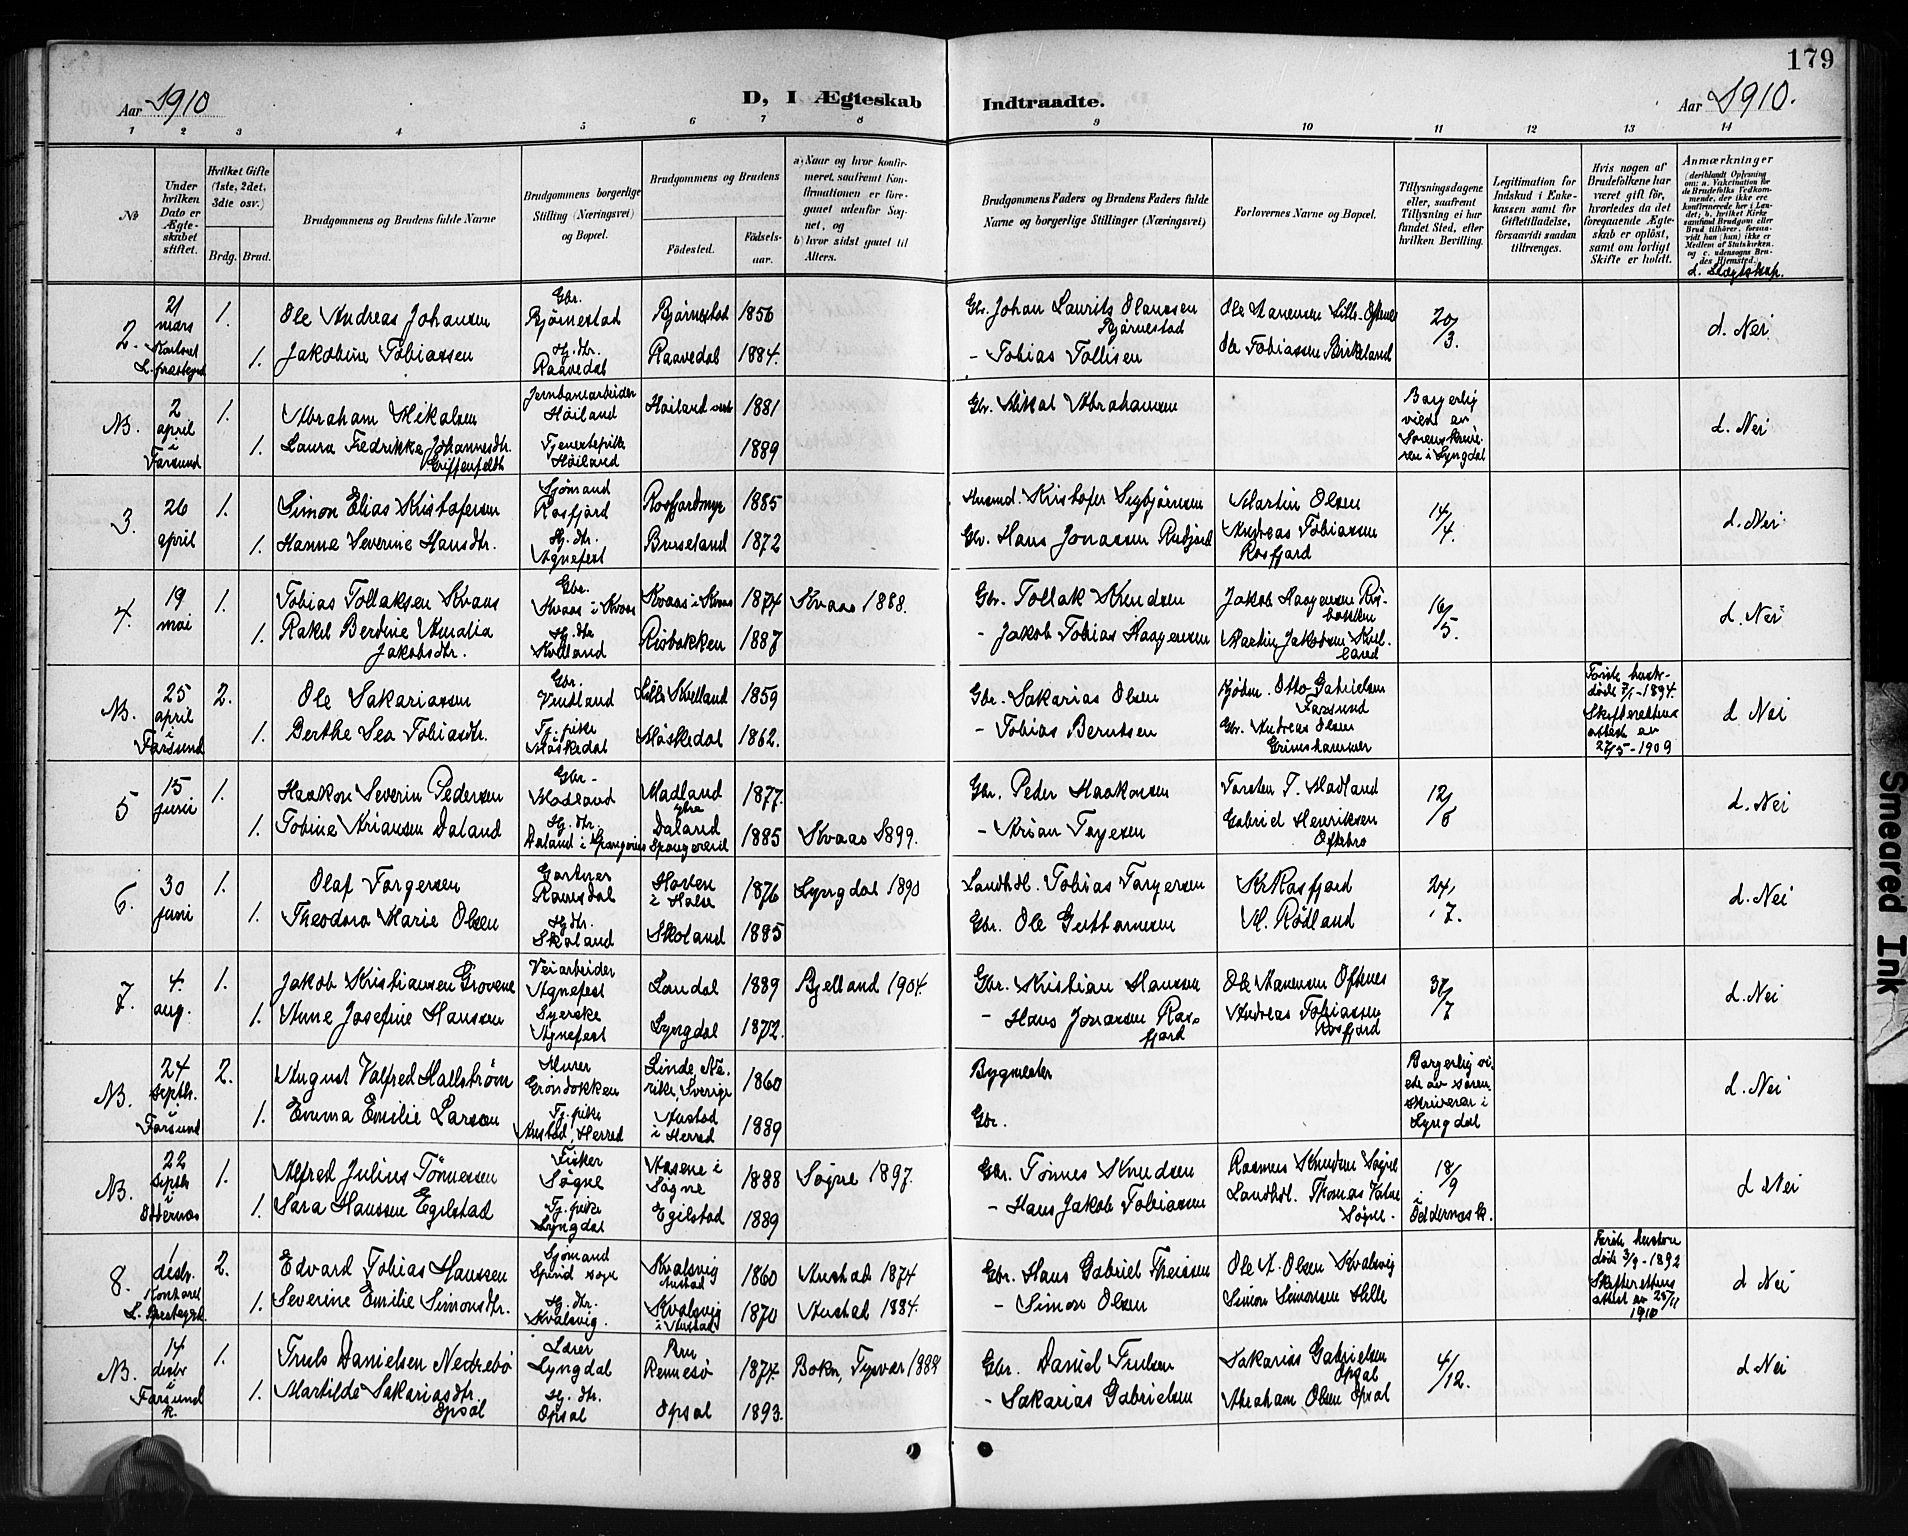 179
Aar 1910
D, I Ægteskab
Indtraadte.
Aar 1910.
1 2 3 4 5 6 7 8 9 10 11 12 13 14
No
Under hvilken Dato er Ægteskabet stiftet.
Hvilket Gifte (1ste, 2det, 3die osv.)
Brdg. Brud.
Brudgommens og Brudens fulde Navne
Brudgommens borgerlige Stilling (Næringsvei) og Bopæl.
Brudgommens og Brudens
Fødested.
Fødselsaar.
a) Naar og hvor konfirmeret, saafremt Konfirmationen er foregaaet udenfor Sognet, og
b) hvor sidst gaaet til Alters.
Brudgommens Faders og Brudens Faders fulde Navne og borgerlige Stillinger (Næringsvei)
Forlovernes Navne og Bopæl.
Tillysningsdagene eller, saafremt Tillysning ei har fundet Sted, efter hvilken Bevilling.
Legitimation for Indskud i Enkekassen samt for Giftetilladelse, forsaavidt saadan tiltrænges.
Hvis nogen af Brudefolkene har været gift før, hvorledes da det foregaaende Ægteskab er opløst, samt om lovligt Skifte er holdt.
Anmærkninger
(deriblandt Oplysning om: a. Vakcination for de Brudefolks Vedkommende, der ikke ere konfirmerede her i Landet; b. hvilket Kirkesamfund Brudgom eller Brud tilhører, forsaavidt han (hun) ikke er Medlem af Statskirken, og c. udensogns Brudes Hjemsted.)
d. Slægtskap.
2. 21 mars 1. Ole Andreas Johansen Gbr. Bjørnestad Bjørnestad 1856 Gbr. Johan Laurits Olaussen Bjørnestad Ole Aanensen Lille-Oftenes 20/3. d. Nei
1. Jakobine Tobiassen Hj. dtr. Raavedal Raavedal 1884. - Tobias Tollisen Ole Tobiassen Birkeland
N. 2 april i Farsund 1. Abraham Mikalsen Jernbanearbeider Høiland 1881 Gbr. Mikal Abrahamsen Borgerlig viede av Sorenskriveren i Lyngdal d. Nei
1. Laura Fredrikke Johannesdtr. Griffenfeldt Tjenestepike Høiland 1889
3. 26 april 1. Simon Elias Kristofersen Sjømand Rosfjord Rosfjordmyr 1885 Husmd. Kristofer Sigbjørnsen Martin Olsen 14/4. d. Nei
1. Hanne Severine Hansdtr. Hj. dtr. Agnefest Buseland 1872 Gbr. Hans Jonassen Andreas Tobiassen Rosfjord
4. 19 mai 1. Tobias Tollaksen Kvaas Gbr. Kvaas i Kvaas Kvaas i Kvaas 1874 Kvaas 1888. Gbr. Tollak Knudsen Jakob Haagensen 16/5. d. Nei
1. Rakel Berdine Amalia Jakobsdtr. Hj. dtr Røbakken 1887 - Jakob Tobias Haagensen Martin Jakobsen
N. 25 april i Farsund 2. Ole Sakariassen Gbr. Vintland Lille Kvelland 1859 Gbr. Sakarias Olsen Otto Gabrielsen Farsund Første hustr. døde 7/1-1894. Skifterettens attest av 27/5-1909 d Nei
1. Berthe Sea Tobiasdtr. Tj. pike Møskedal Møskedal 1862. - Tobias Berntsen Gbr. Andreas Olsen Grimshammer
5 15 juni 1. Haakon Severin Pedersen Gbr - Madland Madland 1877. Gbr. Peder Haakonsen Torsten T. Madland 12/6 d. Nei
1. Tobine Ariansen Daland Hj. dtr. Daland i Spangereid Daland Spangereid 1885 Kvaas 1899. - Arian Tarjesen Gabriel Henriksen Oftebro
6. 30 juni 1. Olaf Torgersen Gartner Ramsdal i Halse 1876 Lyngdal 1890 Landhdl. Tobias Torgersen K. Rosfjord 24/7. d. Nei
1. Theodora Marie Olsen Hj. dtr. Skoland Skoland 1885 Gbr. Ole Guttormsen M. Rødland
7. 4. aug. 1. Jakob Kristiansen Grovene Veiarbeider Agnefest Laudal 1889 Bjelland 1904. Gbr. Kristian Hanssen Ole Aanensen Oftenes 31/7 d. Nei
1. Anne Josefine Hanssen Syerske Agnefest Lyngdal 1872. - Hans Jonassen Rosfjord Andreas Tobiassen Rosfjord
N. 24 septbr. i Farsund 2. August Valfred Hallstrøm Murer Grøndokken Linde, Nerike, Sverige 1860 Bygmester Borgerlig viede av sorenskriveren i Lyngdal d. Nei
1. Emma Emilie Larsen Tj. pike Austad, Herred Austad i Herred 1889 Gbr.
N. 22 Septbr i Odernes 1. Alfred Julius Tønnessen Fisker Søgne Aasene i Søgne 1888 Søgne 1897. Gbr. Tønnes Knudsen Rasmus Knudsen Søgne 18/9 i Oddernes k. d Nei
1. Sara Hanssen Egilstad Tj. pike Lyngdal Egilstad 1889 - Hans Jakob Tobiassen Landhdl. Thomas Vatne Søgne -
8. 1 desbr. Kontoret L. Prestegrd. 2. Edvard Tobias Hanssen Sjømand Spind sogn Kvalsvig Austad 1860 Austad 1874 Gbr. Hans Gabriel Theissen Ole A. Olsen Kvalsvig Første hustru døde 3/9-1892 Skifterettens attest av 25/11 1910 d Nei
1. Severine Emilie Simonsdtr. Hj. dtr. Kvalsvig. Kvalsvig i Austad 1870 Austad 1884. - Simon Olsen Simon Simonsen Hille
N. 14 desbr i Farsund k. 1. Truls Danielsen Nedrebø Lærer Lyngdal Bru Rennesø 1874. Bokn, Tysvær 1888 Gbr. Daniel Trulsen Sakarias Gabrielsen Opsal 4/12. d Nei
1. Martilde Sakariasdtr. Opsal Hj. dtr. Opsal Opsal 1893. - Sakarias Gabrielsen Abraham Olsen Opsal
Smeared Ink